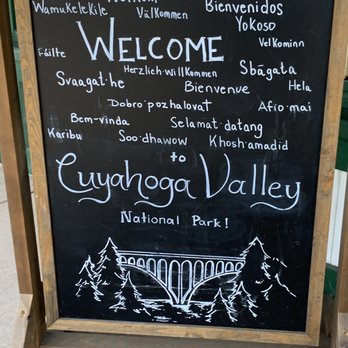 Wamukelekile Välkommen Bienvenidos
Yokoso
WELCOME Velkominn
Fáilte Herzlich-willkommen Sbāgata
Svaagat·he Bienvenue Hela
Dobro·pozhalovat Afio·mai
Bem-vinda Selamat·datang
Karibu Soo·dhawow Khosh·amadid
to
Cuyahoga Valley
National Park!